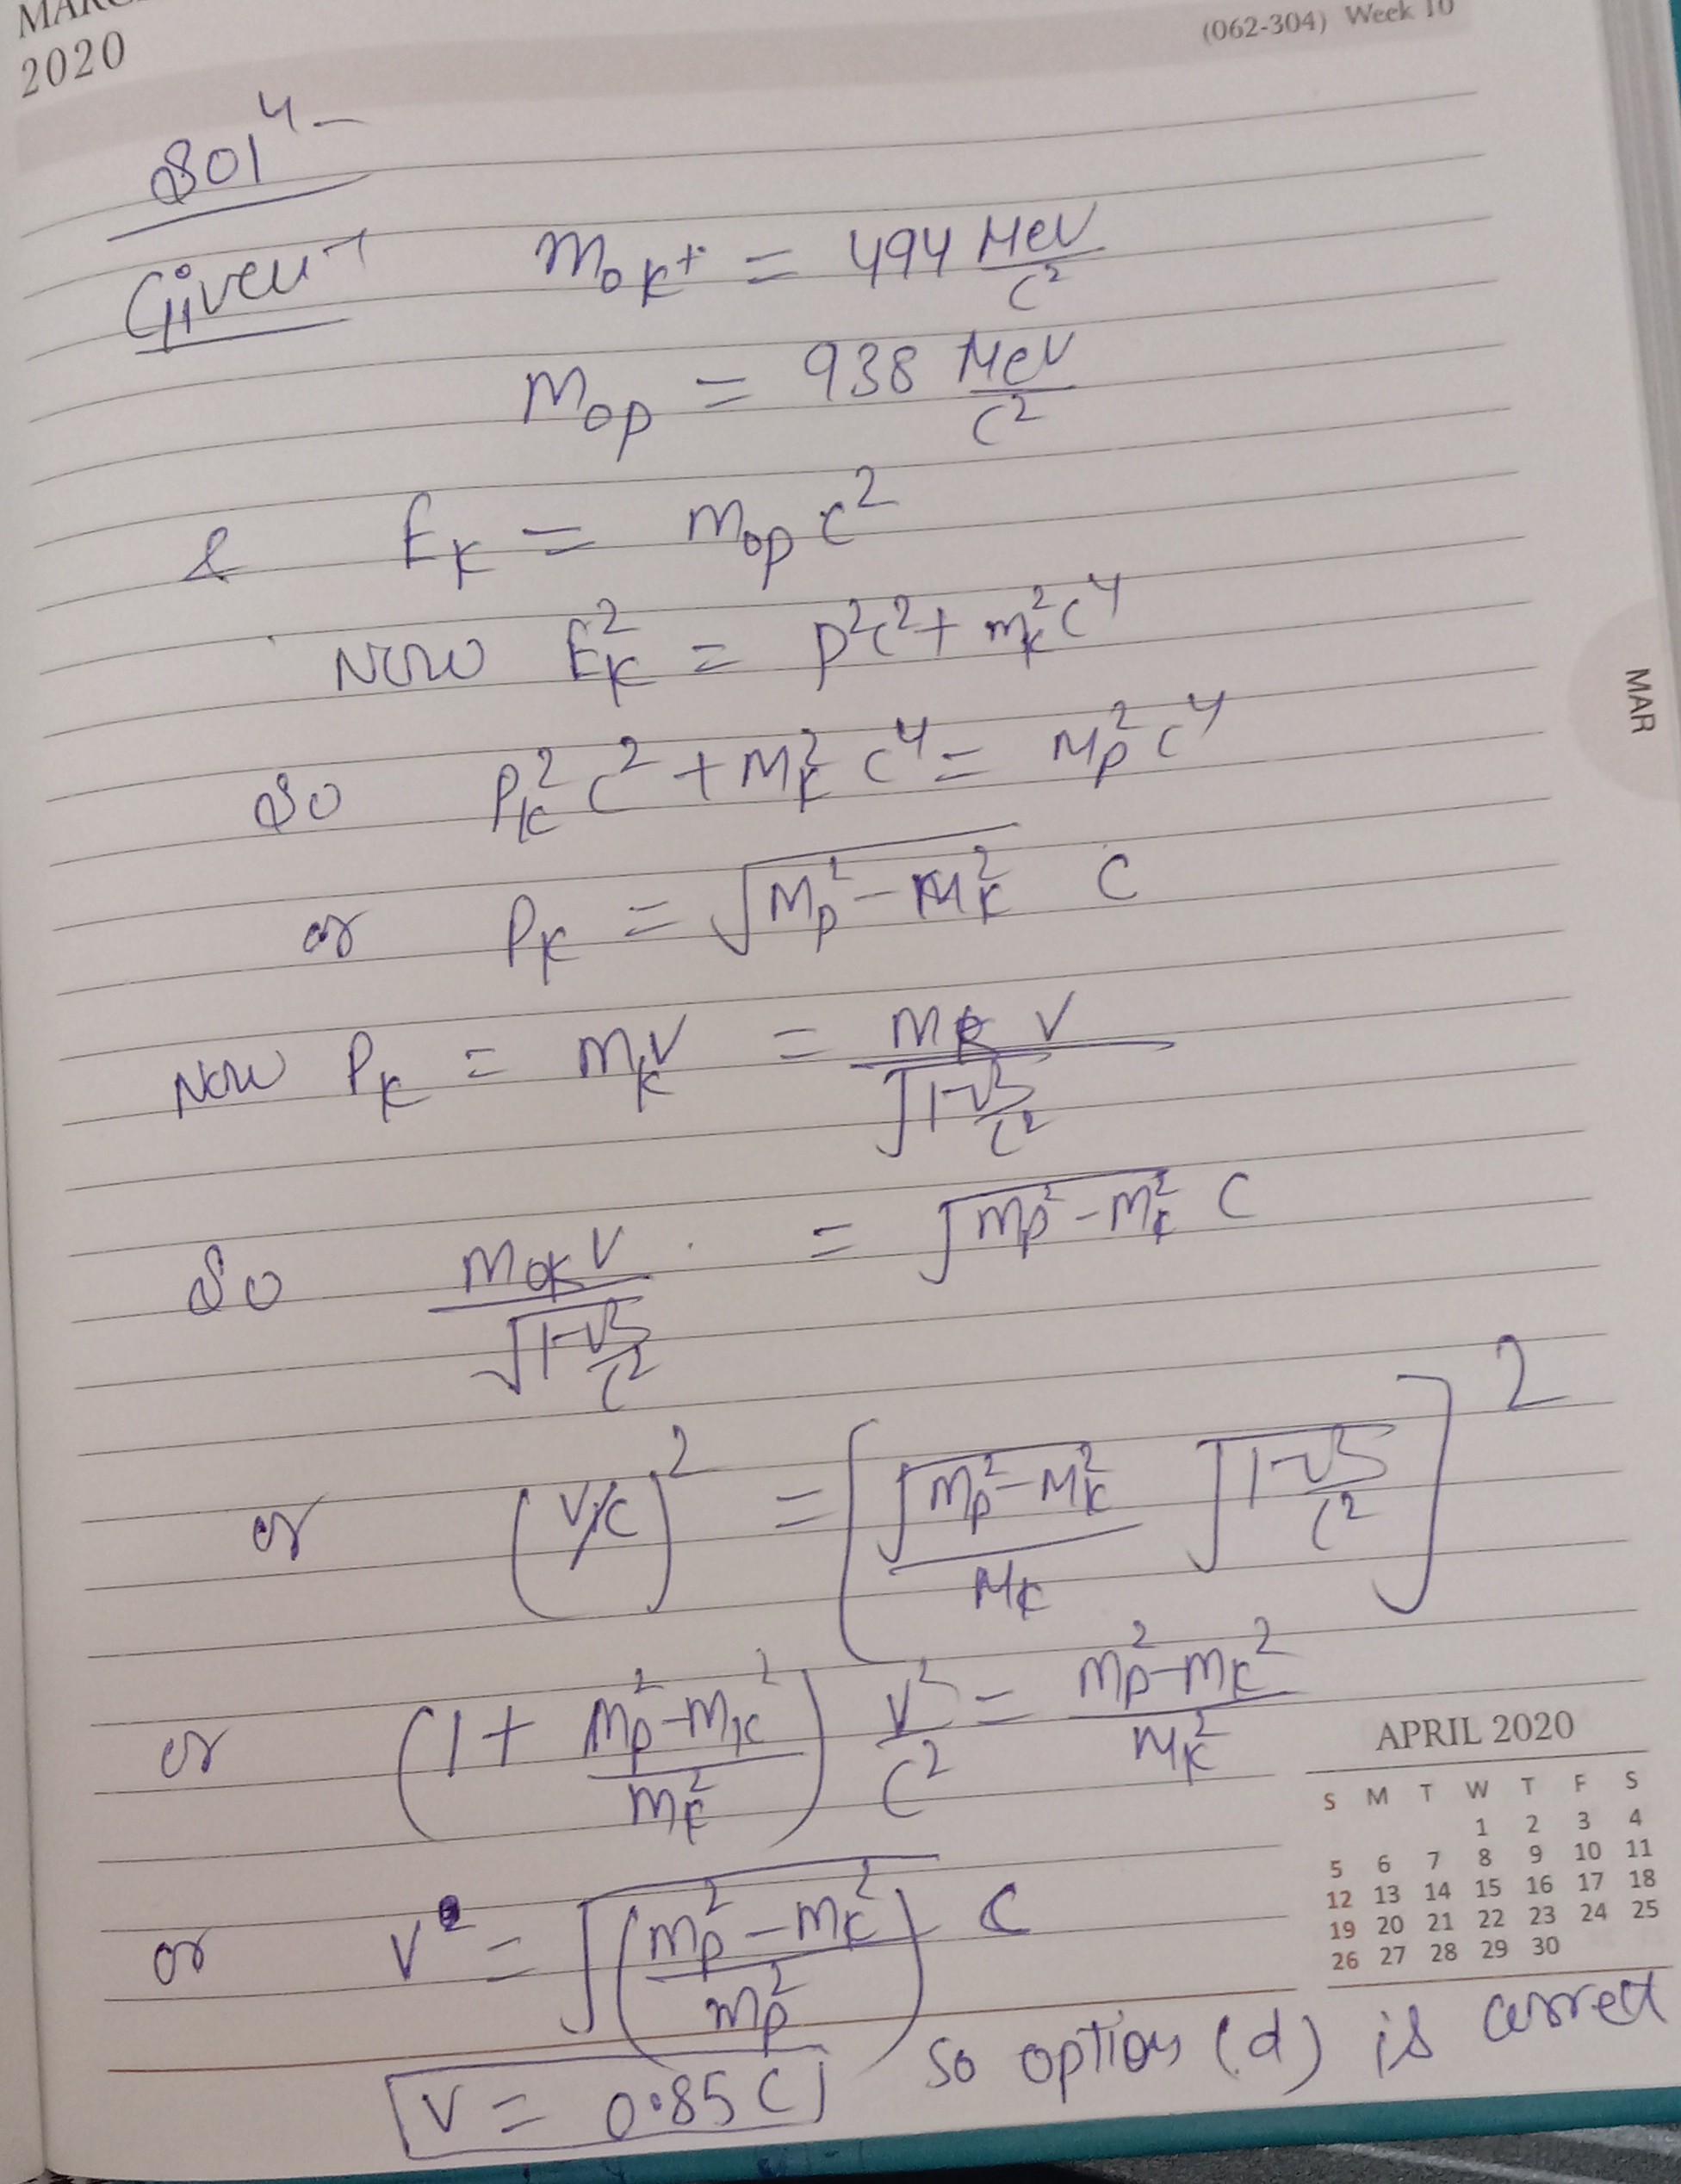 2020
(062-304) Week 10
Solⁿ –
Given → m₀K⁺ = 494 MeV/c²
m₀p = 938 MeV/c²
& E_K = m₀p c²
Now E_K² = p²c² + m_K²c⁴
So P_K² c² + M_K² c⁴ = M_p² c⁴
or P_K = √(M_p² - M_K²) C
MAR
Now P_K = m_K V = M_K V / √(1-v²/c²)
So M₀K V / √(1-v²/c²) = √(m_p² - m_K²) C
or (V/C)² = [√(m_p² - M_K²) / M_K √(1-v²/c²)]²
or (1 + (m_p² - m_K²)/m_K²) V²/C² = (m_p² - m_K²)/m_K²
or V = √((m_p² - m_K²)/m_p²) C
APRIL 2020
S M T W T F S
1 2 3 4
5 6 7 8 9 10 11
12 13 14 15 16 17 18
19 20 21 22 23 24 25
26 27 28 29 30
V = 0.85 C So option (d) is correct